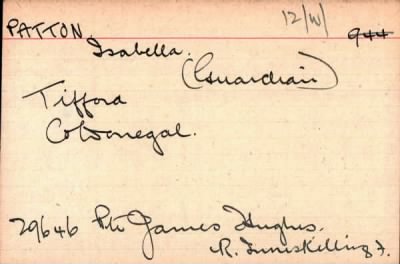 PATTON. 12/W/ 944
Isabella.
(Guardian)
Tiffora
Co Donegal.
29646 Pte James Hughes.
R. Inniskilling F.